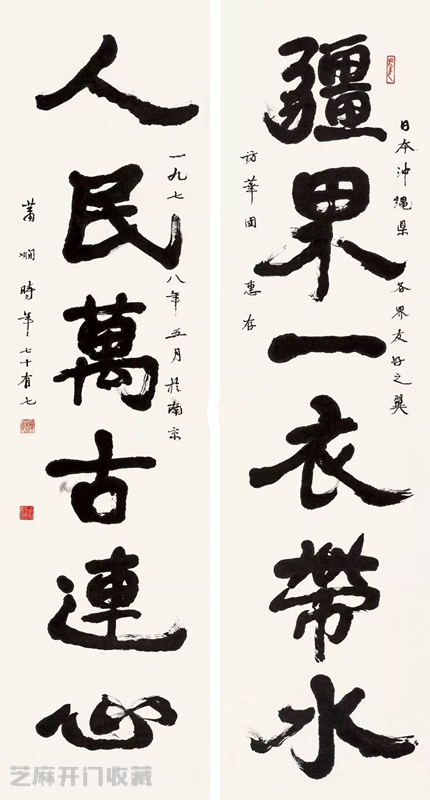 日本沖绳県各界友好之翼
疆界一衣帶水
訪華团惠存
一九七八年五月於南京
人民萬古連心
蕭嫻時年七十有七
芝麻开门收藏